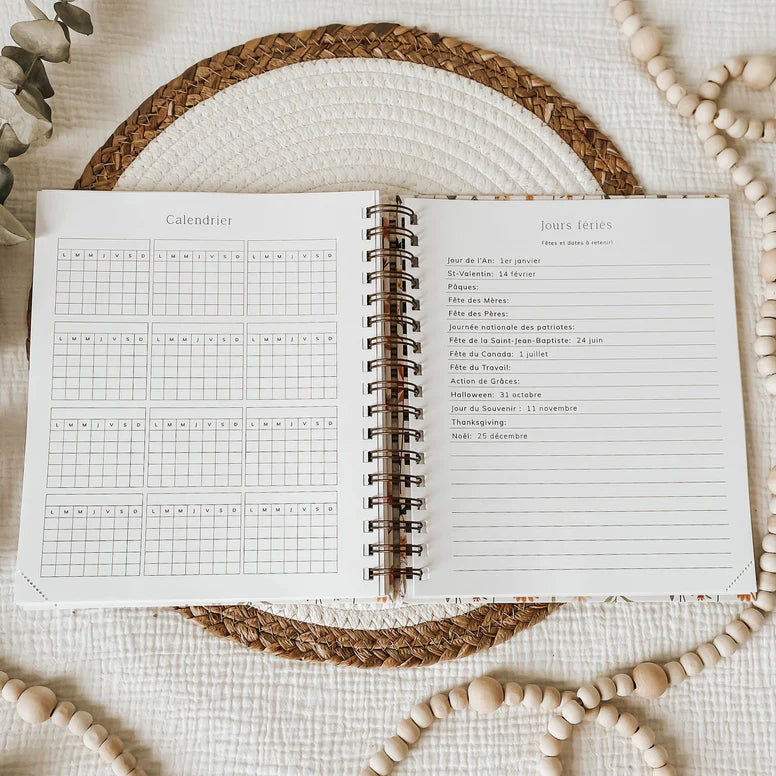 Calendrier
L M M J V S D L M M J V S D L M M J V S D
L M M J V S D L M M J V S D L M M J V S D
L M M J V S D L M M J V S D L M M J V S D
L M M J V S D L M M J V S D L M M J V S D
Jours fériés
Fêtes et dates à retenir!
Jour de l'An: 1er janvier
St-Valentin: 14 février
Pâques:
Fête des Mères:
Fête des Pères:
Journée nationale des patriotes:
Fête de la Saint-Jean-Baptiste: 24 juin
Fête du Canada: 1 juillet
Fête du Travail:
Action de Grâces:
Halloween: 31 octobre
Jour du Souvenir : 11 novembre
Thanksgiving:
Noël: 25 décembre